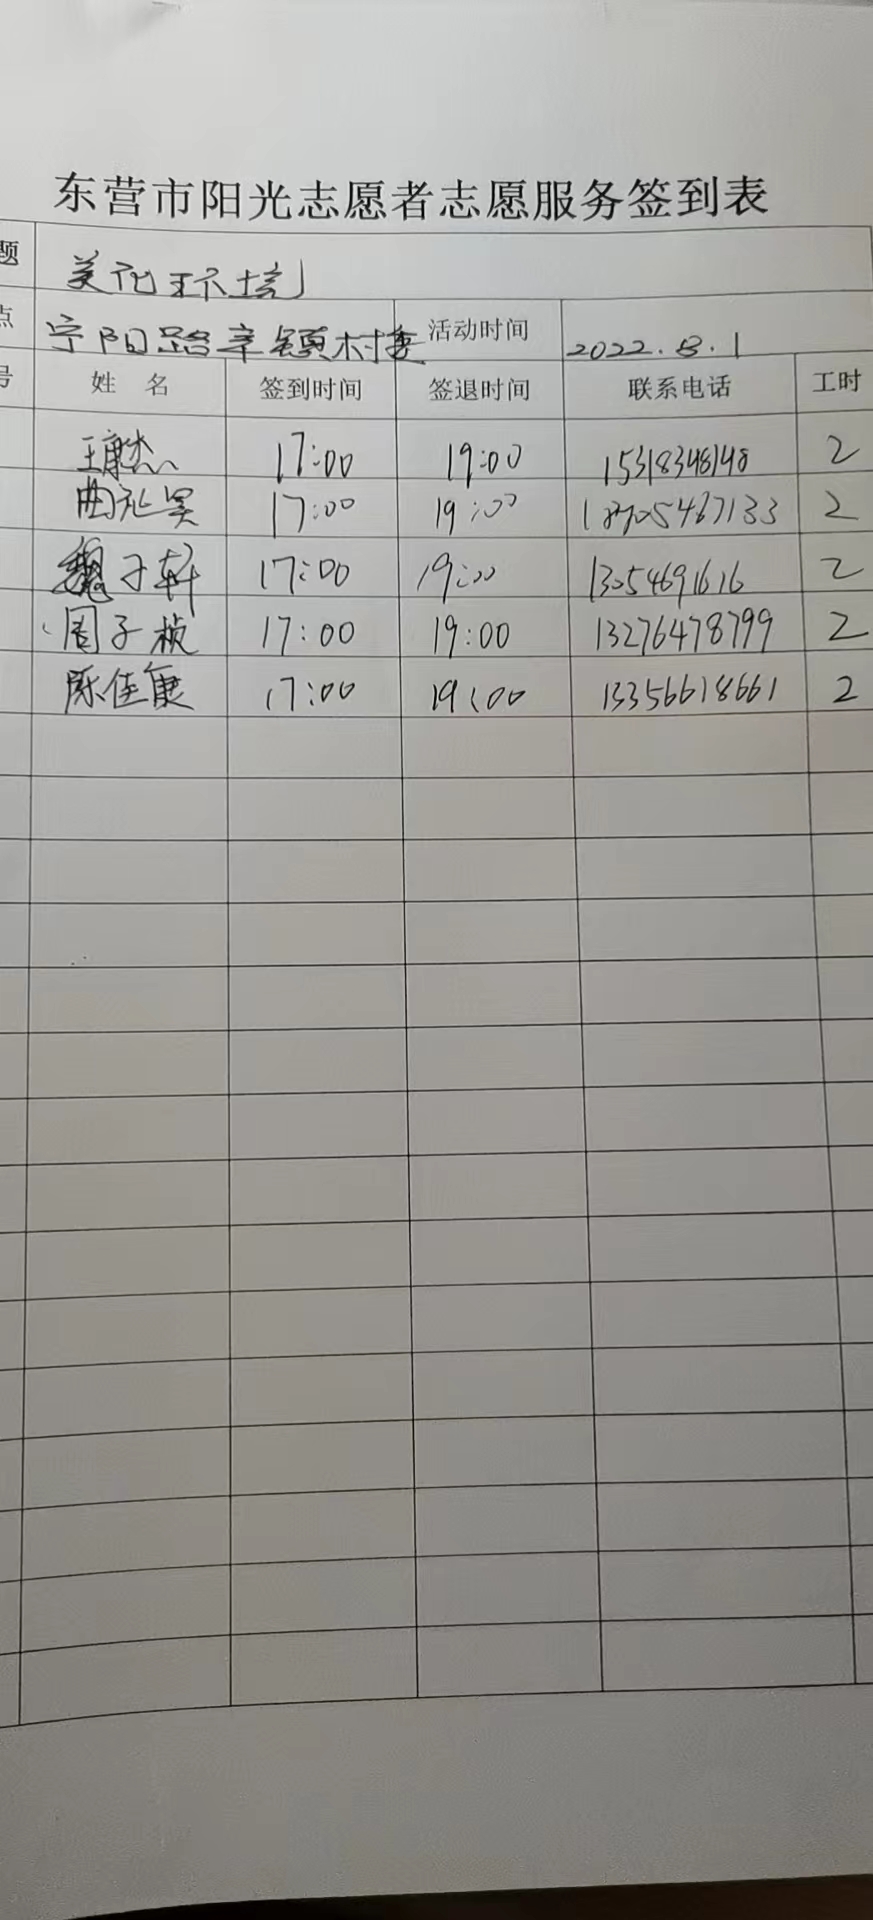 东营市阳光志愿者志愿服务签到表
题 美化环境
点 宁阳路辛镇村 活动时间 2022.8.1
号 姓 名 签到时间 签退时间 联系电话 工时
王康杰 17:00 19:00 15318348148 2
曲祉昊 17:00 19:00 18705467133 2
魏子轩 17:00 19:00 13054691616 2
周子桢 17:00 19:00 13276478799 2
陈佳康 17:00 19:00 13356618661 2